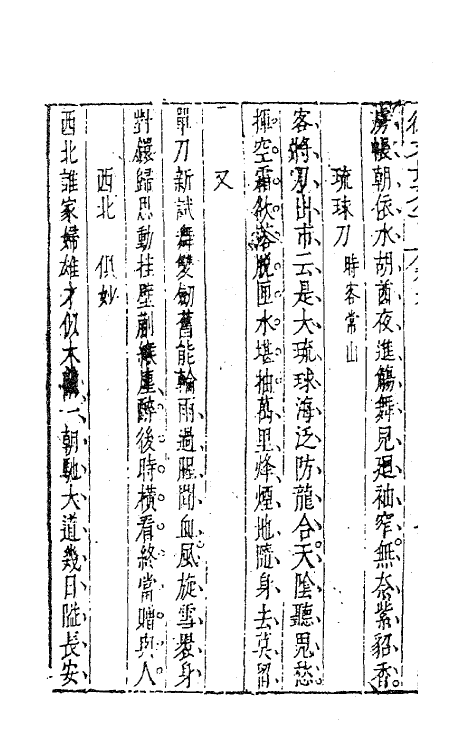 虜帳朝依水胡酋夜進觴舞見廻袖窄無奈紫貂香
琉球刀 時客常山
客將刀出市云是大琉球海泛防龍合天陰聽鬼愁
揮空霜欲落脫匣水堪抽萬里烽煙地隨身去莫留
又
單刀新試舞雙劍舊能輪雨過腥聞血風旋雪裹身
對鐶歸思動挂壁蒯緱塵醉後時橫看終當贈與人
西北 似妙
西北誰家婦雄才似木蘭一朝馳大道幾日隘長安